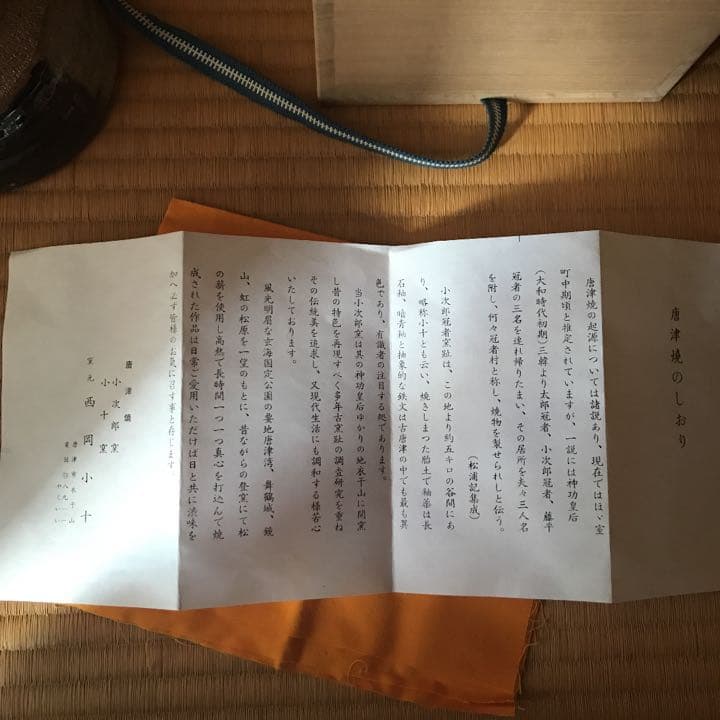 唐津燒のしおり
唐津焼の起源については諸説あり、現在ではほゞ室
町中期頃と推定されていますが、一説には神功皇后
(大和時代初期)三韓より太郎冠者、小次郎冠者、藤平
冠者の三名を連れ帰りたまい、その居所を夫々三人名
を附し、何々冠者村と称し、焼物を製せられしと伝う。
(松浦記集成)
小次郎冠者窯趾は、この地より約五キロの谷間にあ
り、略称小十とも云い、焼きしまつた胎土で釉薬は長
石釉、暗青釉と抽象的な鉄文は古唐津の中でも最も異
色であり、有識者の注目する処であります。
当小次郎窯は其の神功皇后ゆかりの地衣干山に開窯
し昔の特色を再現すべく多年古窯趾の調査研究を重ね
その伝統美を追求し、又現代生活にも調和する様苦心
いたしております。
風光明眉な玄海国定公園の要地唐津湾、舞鶴城、鏡
山、虹の松原を一望のもとに、昔ながらの登窯にて松
の薪を使用し高熱で長時間一つ一つ真心を打込んで焼
成された作品は日常ご愛用いただけば日と共に渋味を
加へ必ず皆様のお気に召す事と存じます
唐津燒
小次郎窯
小十窯
窯元 西岡小十
唐津市衣干山